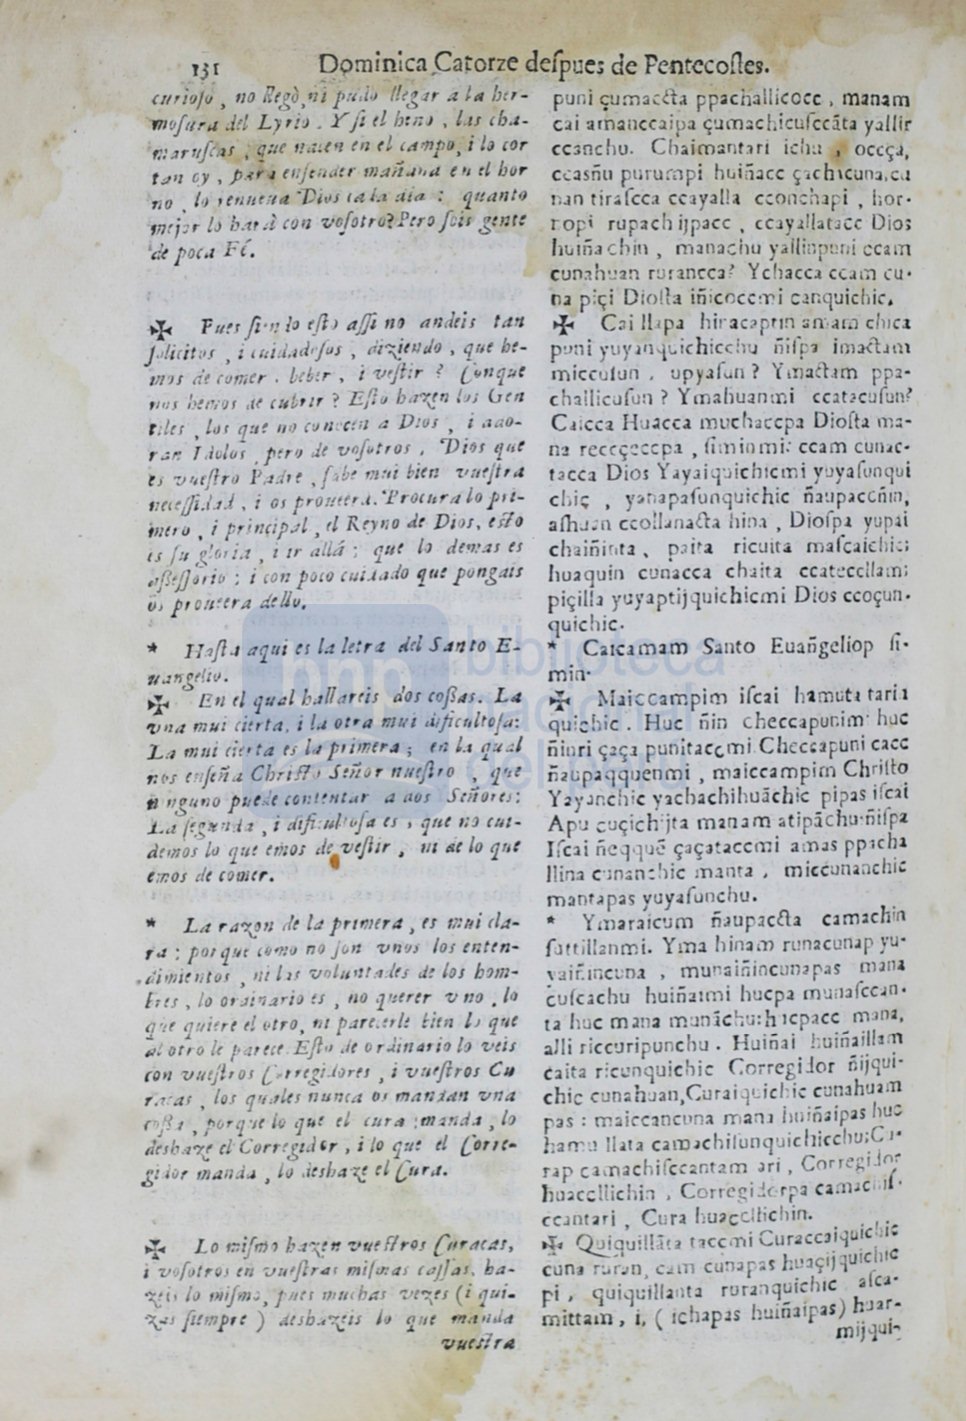 131 Dominica Catorze despues de Pentecostes.
curioso, no Regò, ni pudo llegar a la her-
mosura del Lyrio. Y si el heno, las cha-
maruscas, que nacen en el campo, i lo cor
tan oy, para ensender mañana en el hor
no, lo renueua Dios cada dia: quanto
mejor lo hará con vosotro? Pero sois gente
de poca Fé.
✠ Pues siendo esto assi no andeis tan
solicitos, i cuidadosos, diziendo, que he-
mos de comer, beber, i vestir? Conque
nos hemos de cubrir? Esto hazen los Gen
tiles, los que no conocen a Dios, i ado-
ran Idolos, pero de vosotros, Dios que
es vuestro Padre, sabe mui bien vuestra
necessidad, i os proueera. Procura lo pri-
mero, i principal, el Reyno de Dios, esto
es su gloria, i ir allá; que lo demas es
assessorio; i con poco cuidado que pongais
os proueera dello.
* Hasta aqui es la letra del Santo E-
uangelio.
✠ En el qual hallareis dos cossas. La
vna mui cierta, i la otra mui dificultosa:
La mui cierta es la primera; en la qual
nos enseña Christo Señor nuestro, que
ninguno puede contentar a dos Señores:
La segunda, i dificultosa es, que no cui-
demos lo que emos de vestir, ni de lo que
emos de comer.
* La razon de la primera, es mui cla-
ra; porque como no son vnos los enten-
dimientos, ni las voluntades de los hom-
bres, lo ordinario es, no querer vno, lo
que quiere el otro, ni parecerle bien lo que
al otro le parece. Esto de ordinario lo veis
con vuestros Corregidores, i vuestros Cu
racas, los quales nunca os mandan vna
cossa, porque lo que el cura manda, lo
deshaze el Corregidor, i lo que el Corre-
gidor manda, lo deshaze el Cura.
✠ Lo mismo hazen vuestros Curacas,
i vosotros en vuestras mismas cassas, ha-
zeis lo mismo, pues muchas vezes (i qui-
zas siempre) deshazeis lo que manda
vuestra
puni çumaccta ppachallicocc, manam
cai amanccaipa çumachicusccãta yallir
ccanchu. Chaimantari ichu, occça,
ccasñu purumpi huiñacc çachicuna, cu
nan tirascca ccayalla cconchapi, hor-
ropi rupachijpacc, ccayallatacc Dios
huiñachin, manachu yallinpuni ccam
cunahuan rurancca? Ychacca ccam cu-
na piçi Diosta iñicoccmi canquichic.
✠ Cai llapa hinacaptin amam chica
puni yuyanquichicchu ñispa imactam
miccusun, upyasun? Ymactam ppa-
challicusun? Ymahuanmi ccatacusun?
Caicca Huacca muchaccpa Diosta ma-
na reccçeccpa, siminmi: ccam cunac-
tacca Dios Yayaiquichicmi yuyasunqui
chic, yanapasunquichic ñaupaccñin,
ashuan ccollanacta hina, Diospa yupai
chaiñinta, paita ricuita mascaichic;
huaquin cunacca chaita ccateccllam;
piçilla yuyaptijquichicmi Dios ccoçun-
quichic.
* Caicamam Santo Euañgeliop si-
min.
✠ Maiccampim iscai hamuta taria
quichic. Huc ñin checcapunim huc
ñinri çaça punitaccmi. Checcapuni cacc
ñaupaqquenmi, maiccampim Christo
Yayanchic yachachihuãchic pipas iscai
Apu cuçichijta manam atipãchu ñispa
Iscai ñeqquẽ çaçataccmi amas ppacha
llina cunanchic manta, miccunanchic
mantapas yuyasunchu.
* Ymaraicum ñaupaccta camachin
suttillanmi. Yma hinam runacunap yu-
yaiñincuna, munaiñincunapas mana
cuscachu huiñaimi hucpa munasccan-
ta huc mana munãchu: hucpacc mana,
alli riccuripunchu. Huiñai huiñaillam
caita ricunquichic Corregidor ñijqui-
chic cunahuan, Curaiquichic cunahuam
pas: maiccancuna mana huiñaipas huc
hamu llata camachisunquichicchu; Cu-
rap camachisccantam ari, Corregidor
huaccllichin, Corregidorpa camachis-
ccantari, Cura huaccllichin.
✠ Quiquillãta taccmi Curaccaiquichic
cuna ruran, cam cunapas huaçijquichic
pi, quiquillanta ruranquichic, asca-
mittam, i, (ichapas huiñaipas) huar-
mijqui-